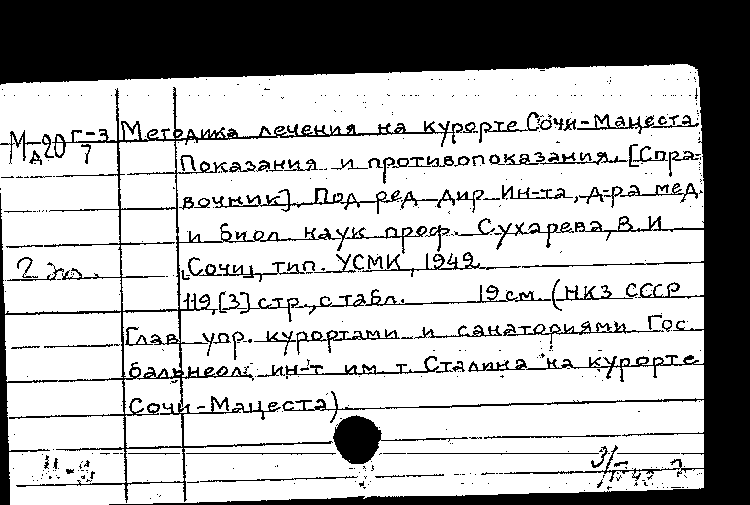 Мд20 Г-3/7 Методика лечения на курорте Сочи-Мацеста
Показания и противопоказания. [Спра-
вочник]. Под ред. дир. Ин-та, д-ра мед.
и биол. наук проф. Сухарева, В. И.
2 экз. [Сочи], тип. УСМК, 1942.
119,[3] стр., с табл. 19 см. (НКЗ СССР
Глав. упр. курортами и санаториями Гос.
бальнеол. ин-т им. т. Сталина на курорте
Сочи-Мацеста).